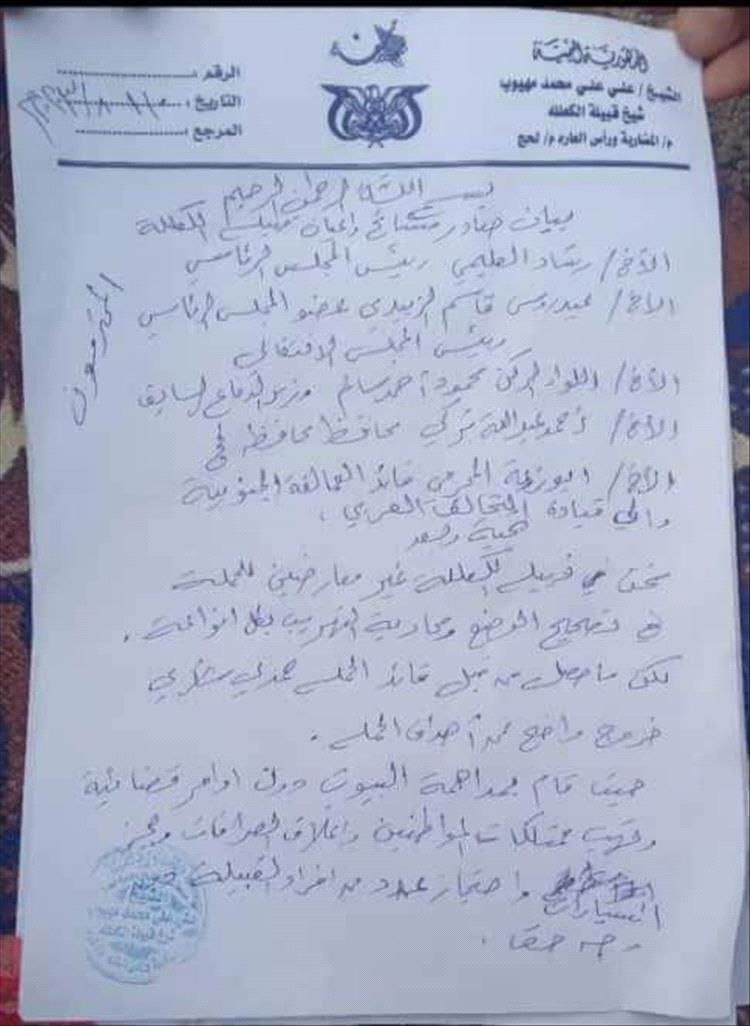 الجمهورية اليمنية
الشيخ / علي علي محمد مهيوب
شيخ قبيلة الكعلله
م/ المضاربة ورأس العارة م/ لحج
الرقم :
التاريخ :
المرجع :
بسم الله الرحمن الرحيم
بيان صادر مشائخ واعيان قبيلة الكعللة
الأخ/ رشاد العليمي رئيس المجلس الرئاسي
الاخ/ عيدروس قاسم الزبيدي عضو المجلس الرئاسي
رئيس المجلس الانتقالي
الأخ/ اللواء الركن محمود أحمد سالم وزير الدفاع السابق
الأخ/ أحمد عبدالله تركي محافظ محافظة لحج
الأخ/ ابوزرعة المحرمي قائد العمالقة الجنوبية
والى قيادة التحالف العربي .
المحترمون
تحية وبعد
نحن في قبيلة الكعللة غير معارضين للحملة
في تصحيح الوضع ومحاربة التهريب بكل انواعة .
لكن ما حصل من قبل قائد الحملة حمدي شكري
خروج واضح عن أهداف الحملة .
حيث قام بمداهمة البيوت دون اوامر قضائية
ونهب ممتلكات المواطنين واغلاق الصرافات وحجز
السيارات واحتجاز عدد من افراد القبيلة دون
وجه حق .
علي محمد مهيوب
شيخ قبيلة الكعلله